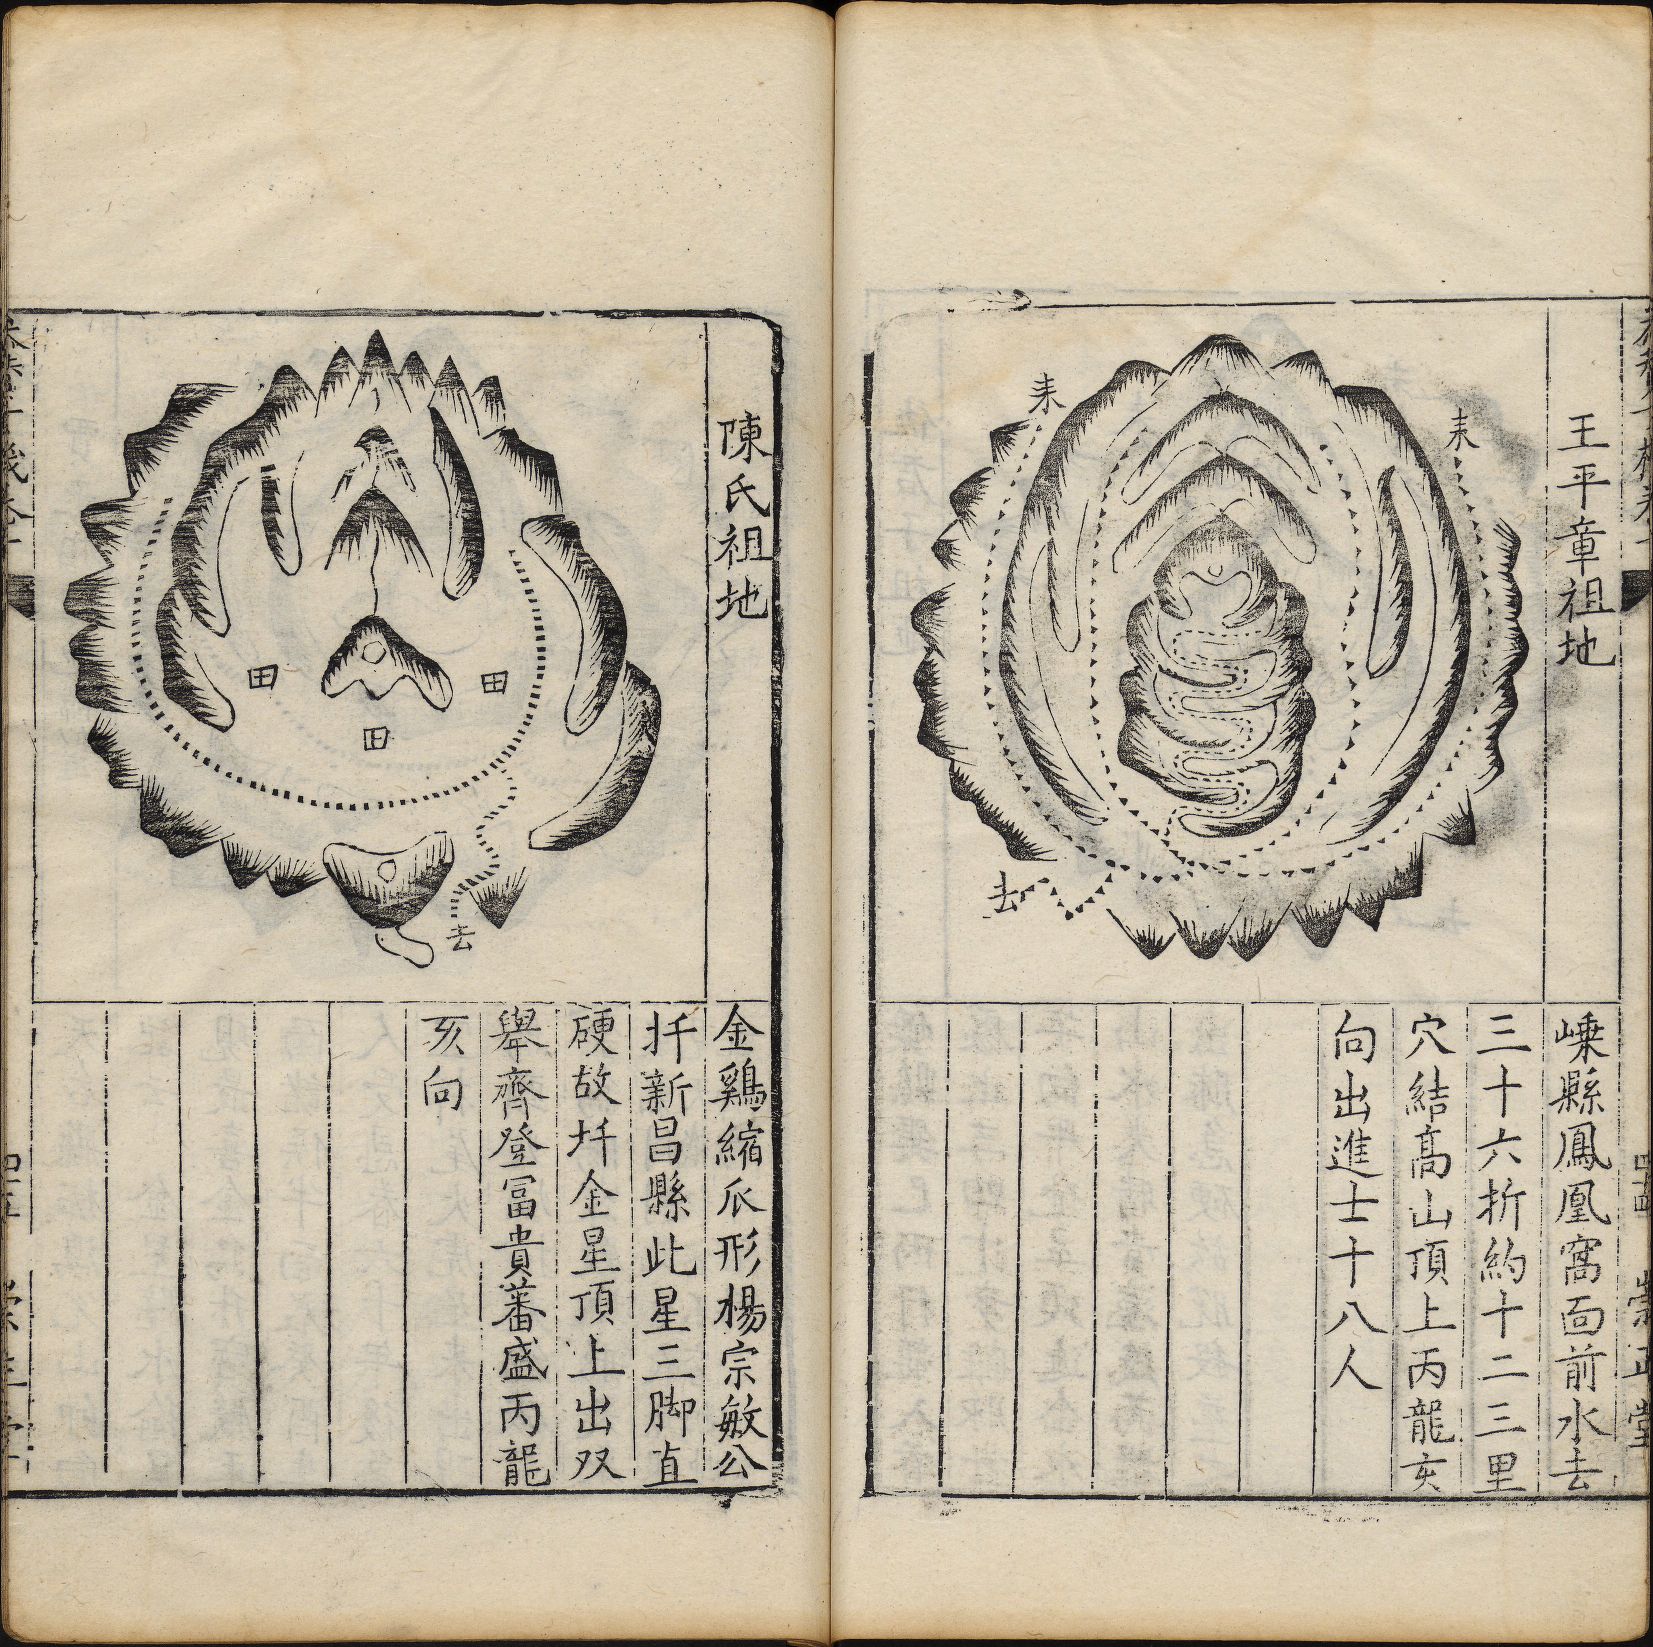 王平章祖地
耒
耒
去
嵊縣鳳凰窩面前水去
三十六折約十二三里
穴結高山頂上丙龍亥
向出進士十八人
崇正堂
陳氏祖地
田
田
田
去
金鷄縮爪形楊宗敏公
扦新昌縣此星三脚直
硬故扦金星頂上出双
舉齊登冨貴蕃盛丙龍
亥向